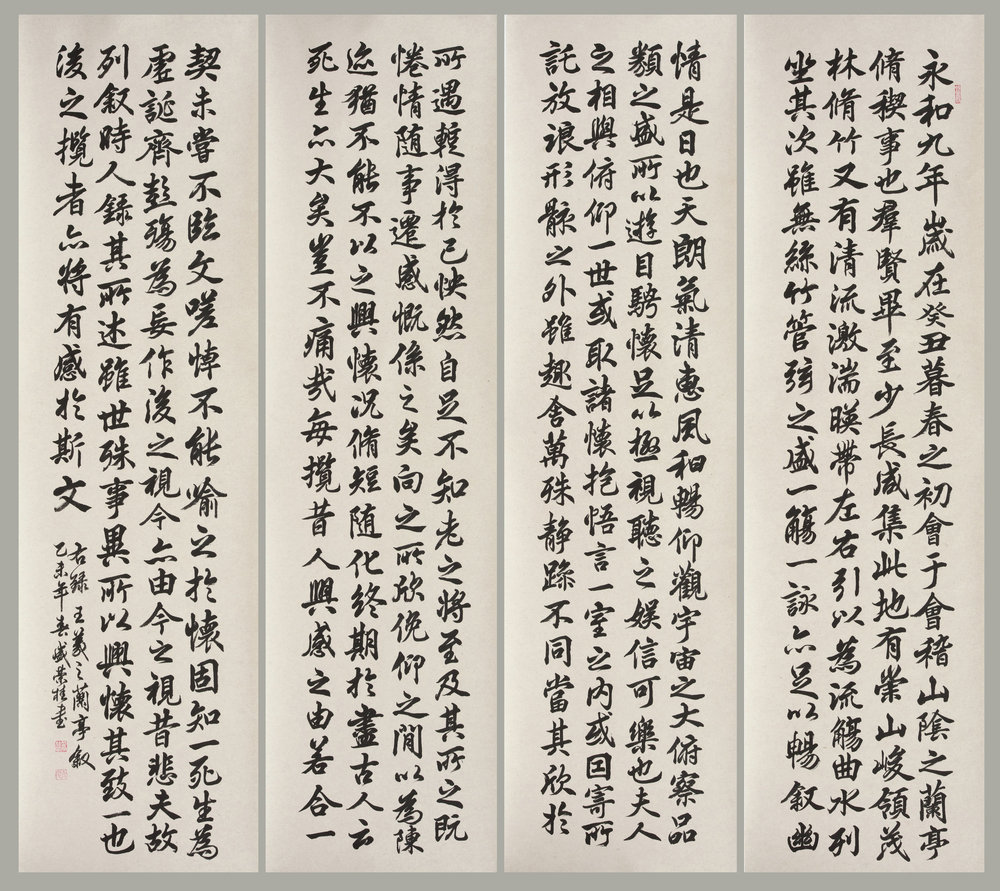 永和九年歲在癸丑暮春之初會于會稽山陰之蘭亭
脩稧事也羣賢畢至少長咸集此地有崇山峻領茂
林脩竹又有清流激湍暎帶左右引以為流觴曲水列
坐其次雖無絲竹管弦之盛一觴一詠亦足以暢叙幽
情是日也天朗氣清惠風和暢仰觀宇宙之大俯察品
類之盛所以遊目騁懷足以極視聽之娛信可樂也夫人
之相與俯仰一世或取諸懷抱悟言一室之内或因寄所
託放浪形骸之外雖趣舍萬殊静躁不同當其欣於
所遇蹔得於己怏然自足不知老之將至及其所之既
惓情随事遷感慨係之矣向之所欣俛仰之閒以為陳
迹猶不能不以之興懷況脩短随化終期於盡古人云
死生亦大矣豈不痛哉每攬昔人興感之由若合一
契未嘗不臨文嗟悼不能喻之於懷固知一死生為
虛誕齊彭殤為妄作後之視今亦由今之視昔悲夫故
列叙時人錄其所述雖世殊事異所以興懷其致一也
後之攬者亦將有感於斯文
右錄王羲之蘭亭叙
乙未年春盛荣桂書